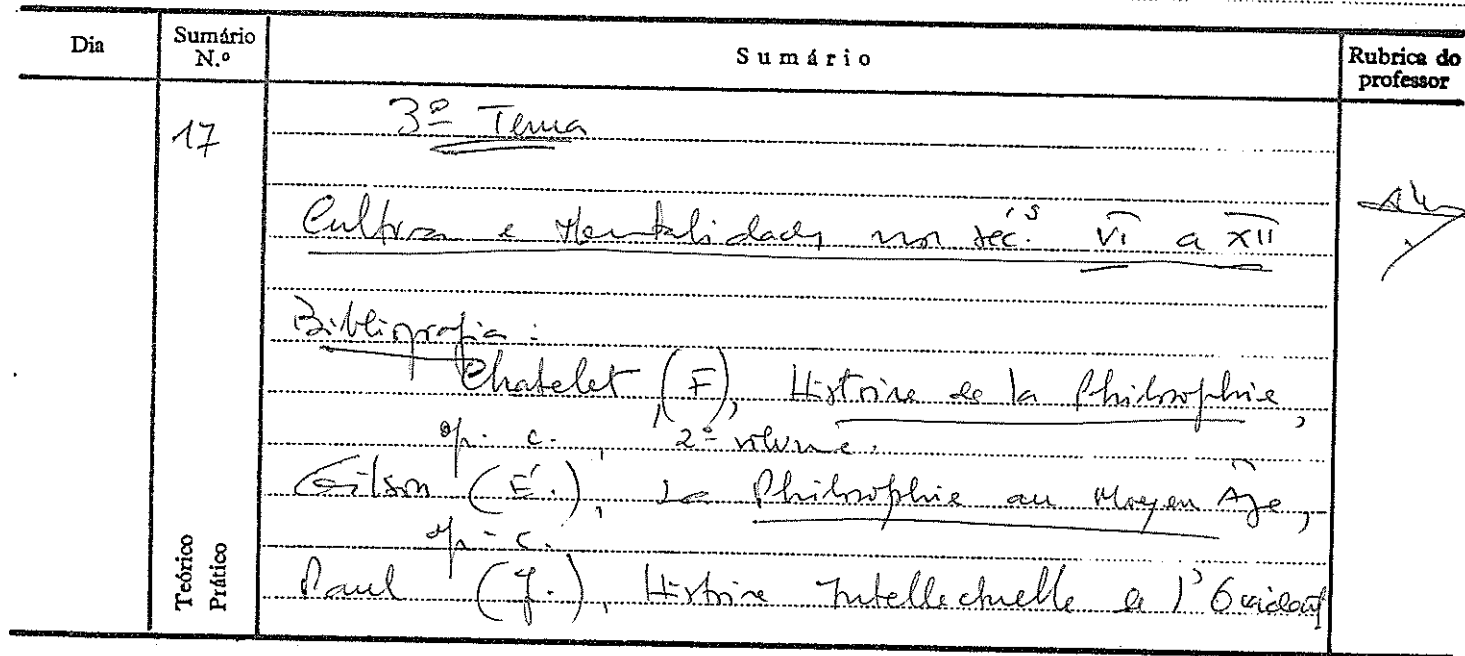 Dia
Sumário N.º
Sumário
Rubrica do professor
17
3º Tema
Cultura e Mentalidades nos séc.s VI a XII
Bibliografia:
Chatelet, (F), Histoire de la Philosophie,
op. c., 2º volume.
Gilson (É.), La Philosophie au Moyen Âge,
op. c.
Paul (J.), Histoire Intellectuelle de l'Occident
Teórico
Prático